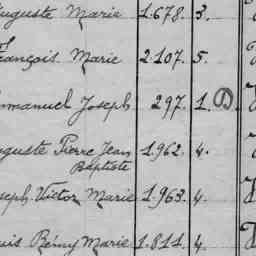 Auguste Marie 1.678. 3.
François Marie 2.107. 5.
Emmanuel Joseph 297. 1. D.
Auguste Pierre Jean 1.962. 4.
Baptiste
Joseph Victor Marie 1.963. 4.
Louis Rémy Marie 1.811. 4.